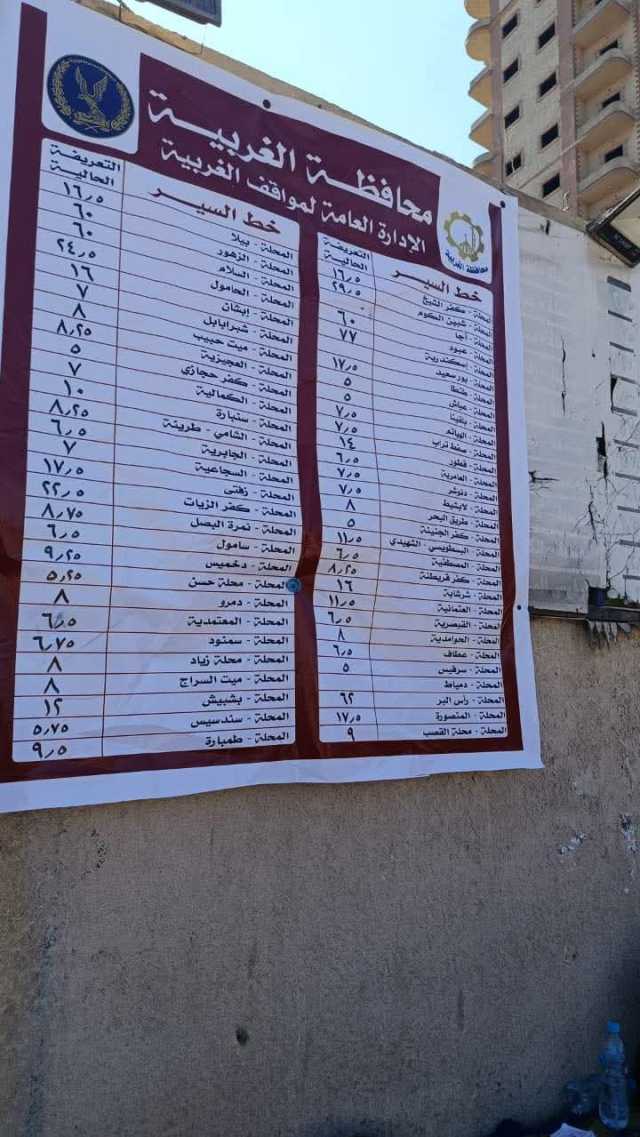 محافظة الغربية
الإدارة العامة لمواقف الغربية
محافظة الغربية
خط السير التعريفة الحالية
المحلة - كفر الشيخ ١٦٫٥
المحلة - شبين الكوم ٢٩٫٥
المحلة - أجا
المحلة - عبود ٦٠
المحلة - اسكندرية ٧٧
المحلة - بورسعيد
المحلة - طنطا ١٧٫٥
المحلة - عياش ٥
المحلة - بلقينا ٥
المحلة - الهياتم ٧٫٥
المحلة - سفط تراب ٧٫٥
المحلة - قطور ١٤
المحلة - العامرية ٦٫٥
المحلة - دنوشر ٧٫٥
المحلة - لابشيط ٧٫٥
المحلة - طريق البحر ٨
المحلة - كفر الجنينة ٥
المحلة - البسطويسي - الشهيدي ١١٫٥
المحلة - المسطنية ٦٫٥
المحلة - كفر قريطنة ٨٫٢٥
المحلة - شرشابة ١٦
المحلة - العثمانية ١١٫٥
المحلة - القيصرية ٦٫٥
المحلة - الحوامدية ٨
المحلة - عطاف ٦٫٥
المحلة - سرفيس ٥
المحلة - دمياط
المحلة - رأس البر ٦٢
المحلة - المنصورة ١٧٫٥
المحلة - محلة القصب ٩
خط السير التعريفة الحالية
المحلة - بيلا ١٦٫٥
المحلة - الزهور ٦٠
المحلة - السلام ٦٠
المحلة - الحامول ٢٤٫٥
المحلة - إبشان ١٦
المحلة - شبرابابل ٧
المحلة - ميت حبيب ٨
المحلة - العجيزية ٨٫٢٥
المحلة - كفر حجازي ٥
المحلة - الكمالية ٧
المحلة - سنبارة ١٠
المحلة - الشامي - طرينة ٨٫٢٥
المحلة - الجابرية ٦٫٥
المحلة - السجاعية ٧
المحلة - زفتى ١٧٫٥
المحلة - كفر الزيات ٢٢٫٥
المحلة - نمرة البصل ٨٫٧٥
المحلة - سامول ٦٫٥
المحلة - دخميس ٩٫٢٥
المحلة - محلة حسن ٥٫٢٥
المحلة - دمرو ٨
المحلة - المعتمدية ٦٫٥
المحلة - سمنود ٦٫٧٥
المحلة - محلة زياد ٨
المحلة - ميت السراج ٨
المحلة - بشبيش ١٢
المحلة - سندسيس ٥٫٧٥
المحلة - طمبارة ٩٫٥